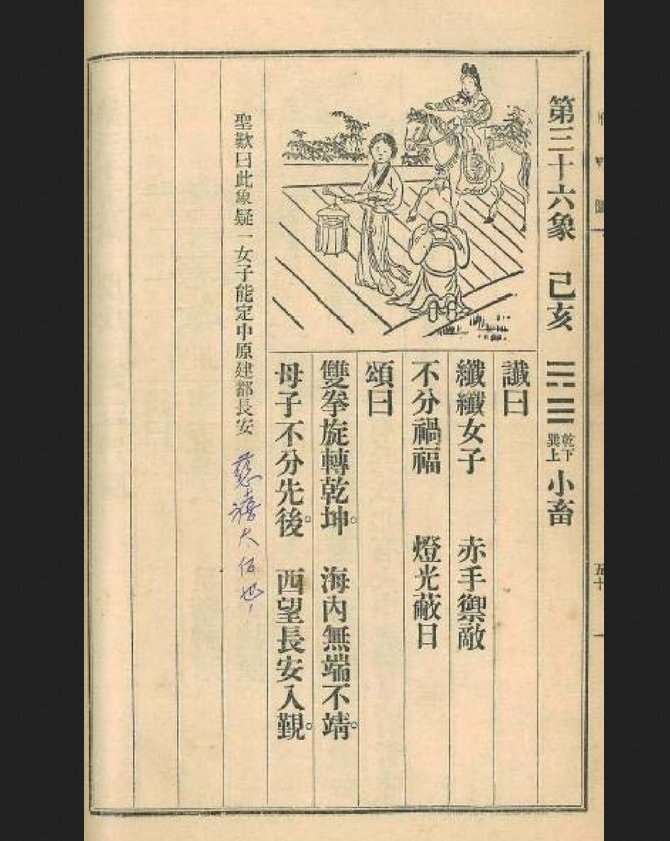 第三十六象 己亥 乾下巽上 小畜
讖曰
纖纖女子 赤手禦敵
不分禍福 燈光蔽日
頌曰
雙拳旋轉乾坤。 海內無端不靖。
母子不分先後。 西望長安入覲。
聖歎曰此象疑一女子能定中原建都長安
慈禧太后也
五十